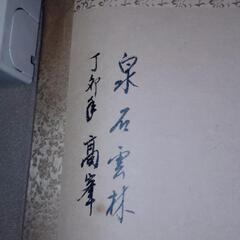 泉石雲林
丁卯年 高峯